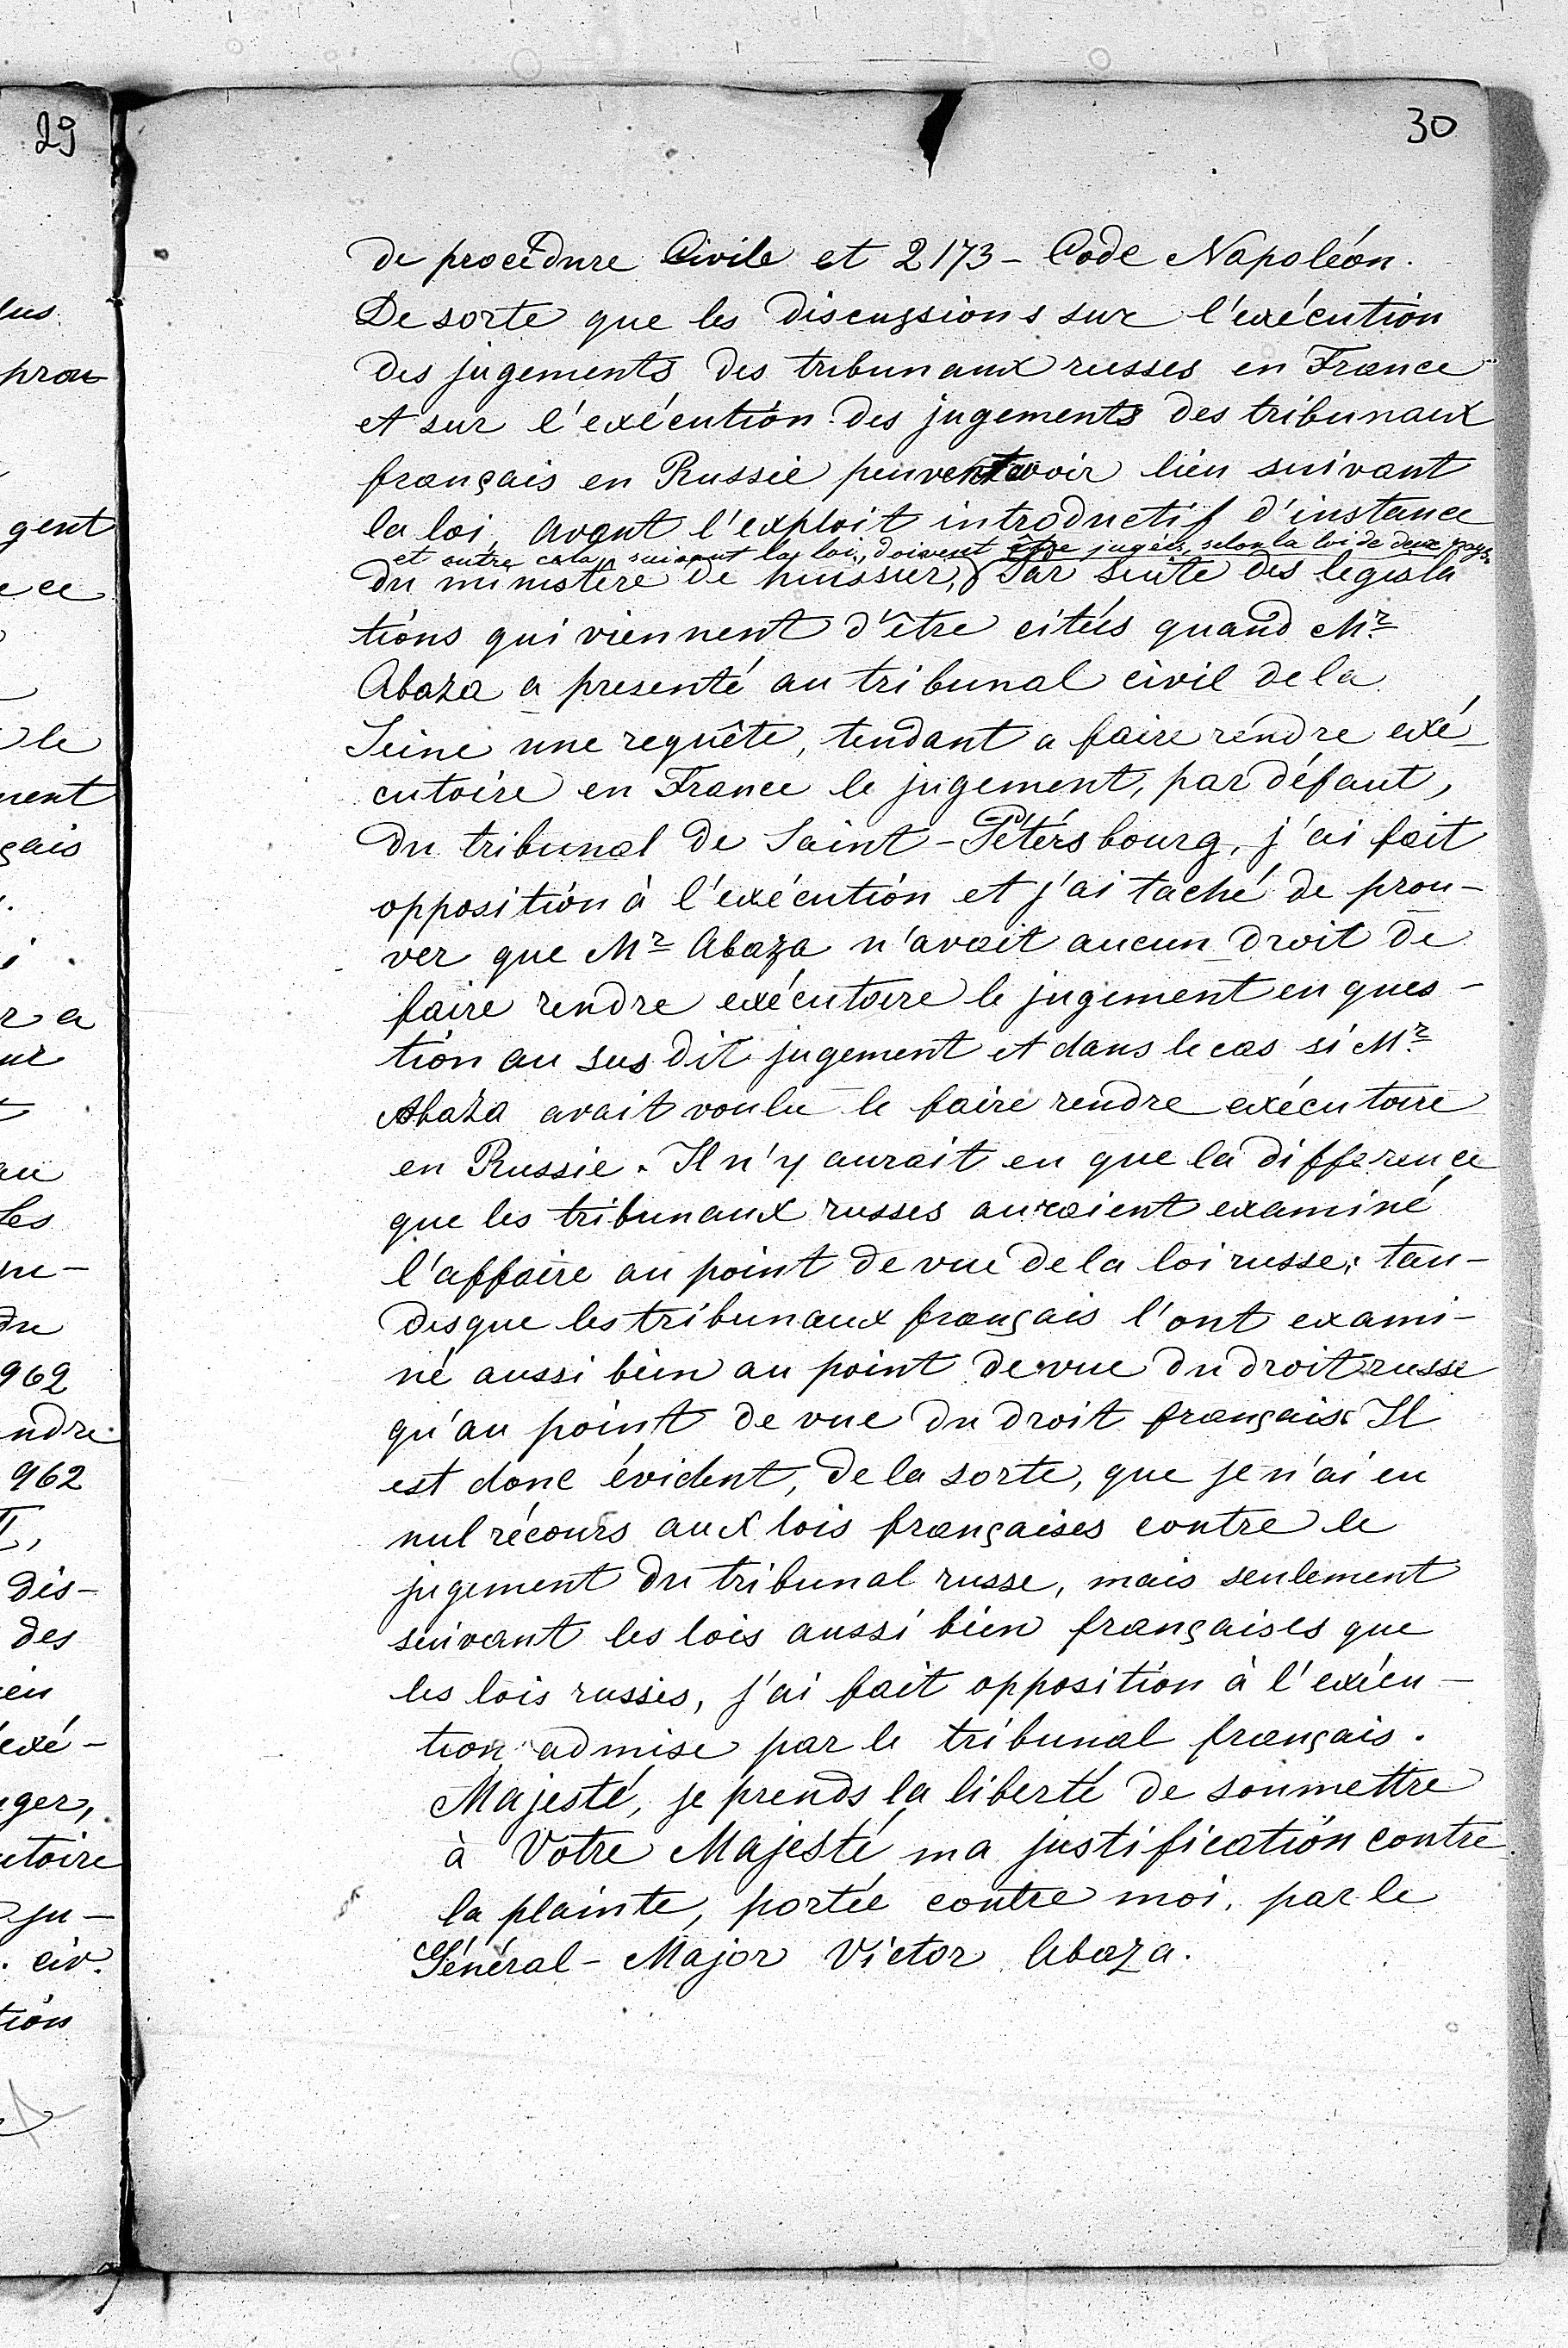 29
30
de procédure Civile et 2173 - Code Napoléon.
De sorte que les discussions sur l'exécution
des jugements des tribunaux russes en France
et sur l'exécution des jugements des tribunaux
français en Russie peuvent avoir lieu suivant
la loi, avant l'exploit introductif d'instance
et outre cela, suivant la loi, doivent être jugées, selon la loi de deux pays.
du ministère de huissier, Par suite des législa
tions qui viennent d'être citées quand Mr
Abaza a presenté au tribunal civil de la
Seine une requête, tendant a faire rendre exé-
cutoire en France le jugement, par défaut,
du tribunal de Saint-Pétérsbourg, j'ai fait
opposition à l'exécution et j'ai taché de prou-
ver que Mr Abaza n'avait aucun droit de
faire rendre exécutoire le jugement en ques-
tion au sus dit jugement et dans le cas si Mr
Abaza avait voulu le faire rendre exécutoire
en Russie. Il n'y aurait eu que la difference
que les tribunaux russes auraient examiné
l'affaire au point de vue de la loi russe, tan-
disque les tribunaux français l'ont exami-
né aussi bien au point de vue du droit russe
qu'au point de vue du droit français. Il
est donc évident, de la sorte, que je n'ai eu
nul récours aux lois françaises contre le
jugement du tribunal russe, mais seulement
suivant les lois aussi bien françaises que
les lois russes, j'ai fait opposition à l'exécu-
tion admise par le tribunal français.
Majesté, je prends la liberté de soumettre
à Votre Majesté ma justification contre
la plainte, portée contre moi, par le
Général-Major Victor Abaza.